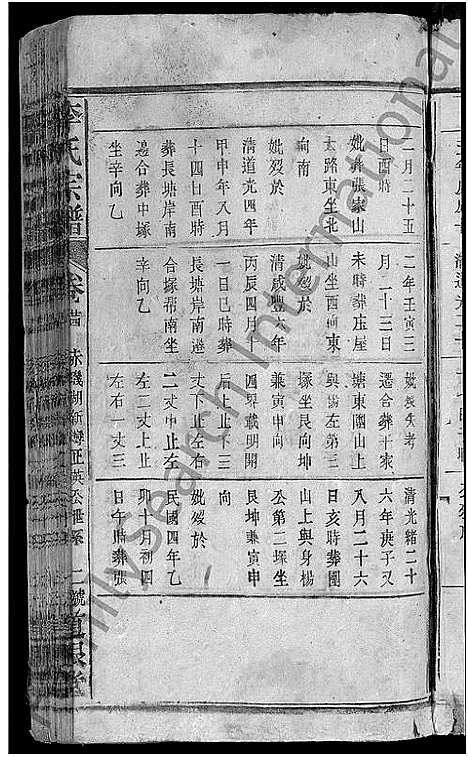 二月二十五
日酉時
妣葬張家山
大路東坐北
向南
妣歿於
清道光四年
甲申年八月
十四日酉時
葬長塘岸南
邊合葬中塚
坐辛向乙
二年壬寅三
月一十三日
未時葬庄屋
山坐西向東
妣歿於
清咸豐六年
丙辰四月十
一日巳時葬
長塘岸南邊
合塚帮南坐
辛向乙
妣歿失考
遷合葬十家
塘東園山上
與楊左第三
塚坐艮向坤
兼寅申向
四界載明開
后上止下三
丈下止左右
二丈中止左
左二丈上止
左右一丈三
清光緒二十
六年庚子又
八月二十六
日亥時葬園
山上與身楊
公第二塚坐
艮坤兼寅申
向
妣歿於
民國四年乙
卯十月初四
日午時葬張
李氏宗譜
卷 赤磯湖新灣正英公世系
二號
FamilySearch International